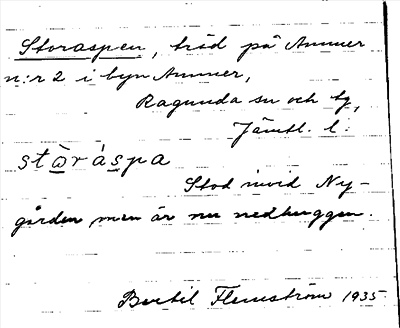 Storaspen, träd på Ammer
n:r 2 i byn Ammer,
Ragunda sn och tg,
Jämtl. l.
stòráspa
Stod invid Ny-
gården men är nu nedhuggen.
Bertil Flemström 1935